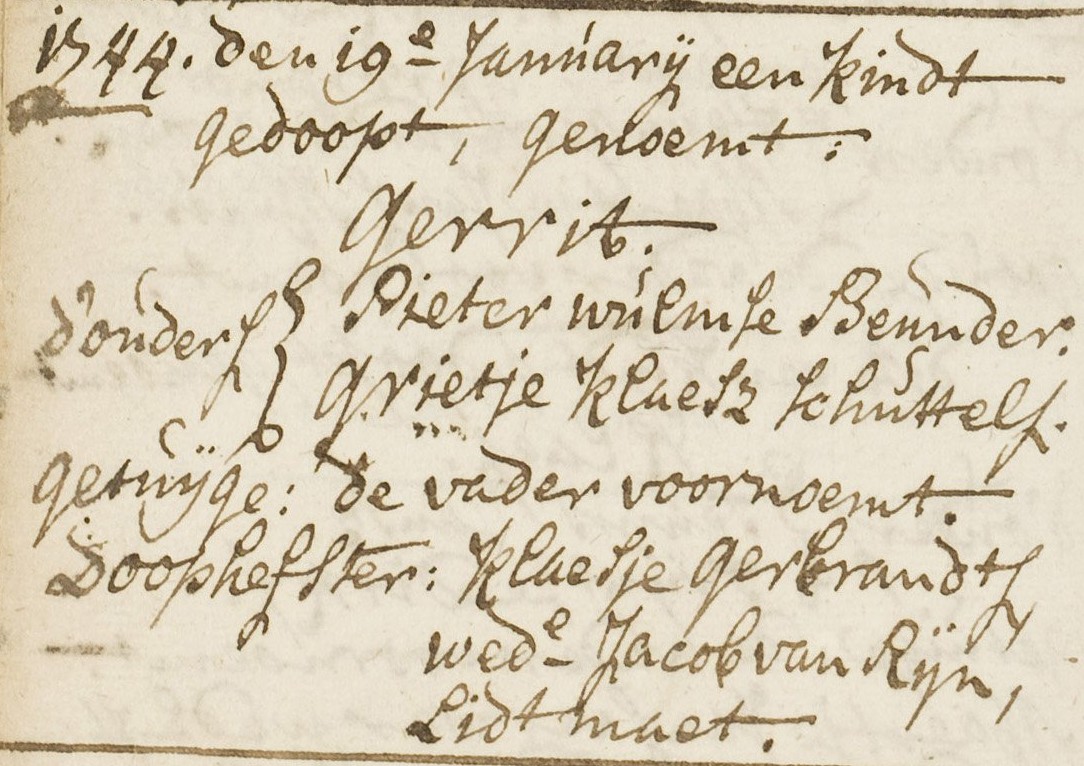 1744. den 19e Januarÿ een kindt
gedoopt, genoemt:
Gerrit.
d'ouders } Pieter wulmse Beunder.
Grietje Klaesz schuttels.
getuÿge: de vader voornoemt.
Doophefster: Klaesje Gerbrandts
wede Jacob van Rÿn,
Lidtmaet.